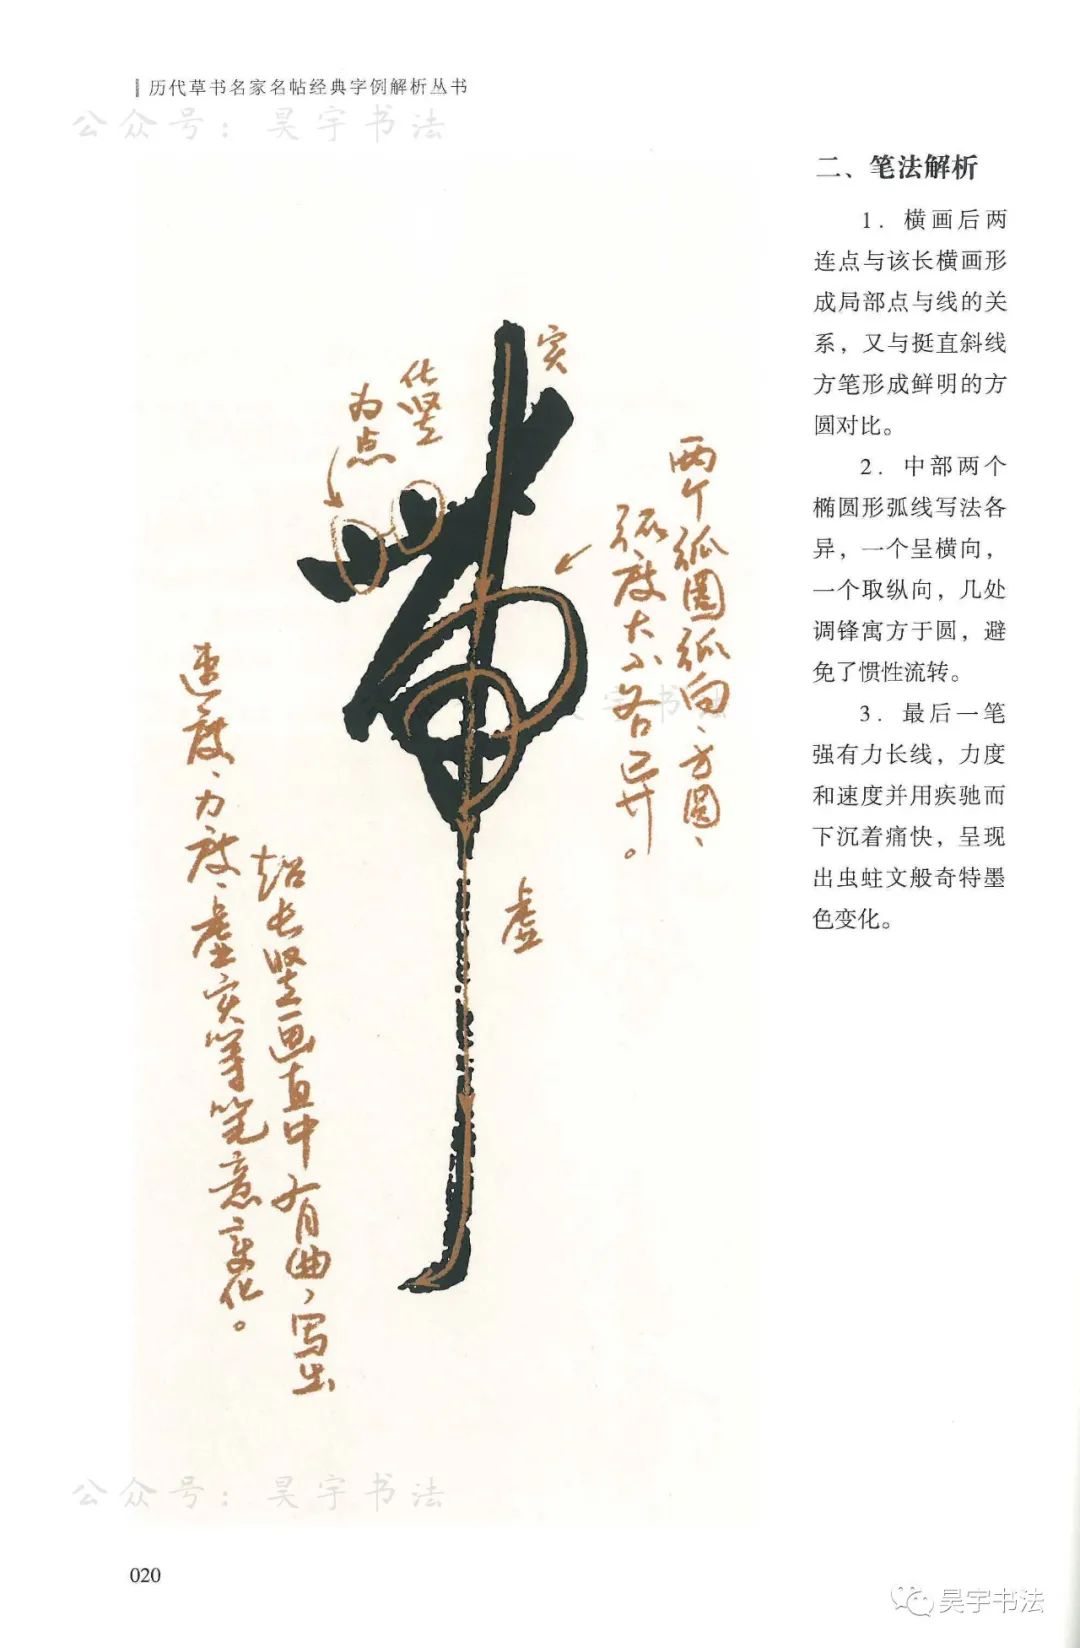 历代草书名家名帖经典字例解析丛书
公众号：昊宇书法
二、笔法解析
1．横画后两
连点与该长横画形
成局部点与线的关
系，又与挺直斜线
方笔形成鲜明的方
圆对比。
2．中部两个
椭圆形弧线写法各
异，一个呈横向，
一个取纵向，几处
调锋寓方于圆，避
免了惯性流转。
3．最后一笔
强有力长线，力度
和速度并用疾驰而
下沉着痛快，呈现
出虫蛀文般奇特墨
色变化。
实
化竖
为点
两个弧圆弧向、方圆、
弧度大小各已异。
昊宇书法
虚
超长竖画直中有曲，写出
速度、力度、虚实等笔意变化。
公众号：昊宇书法
020
昊宇书法